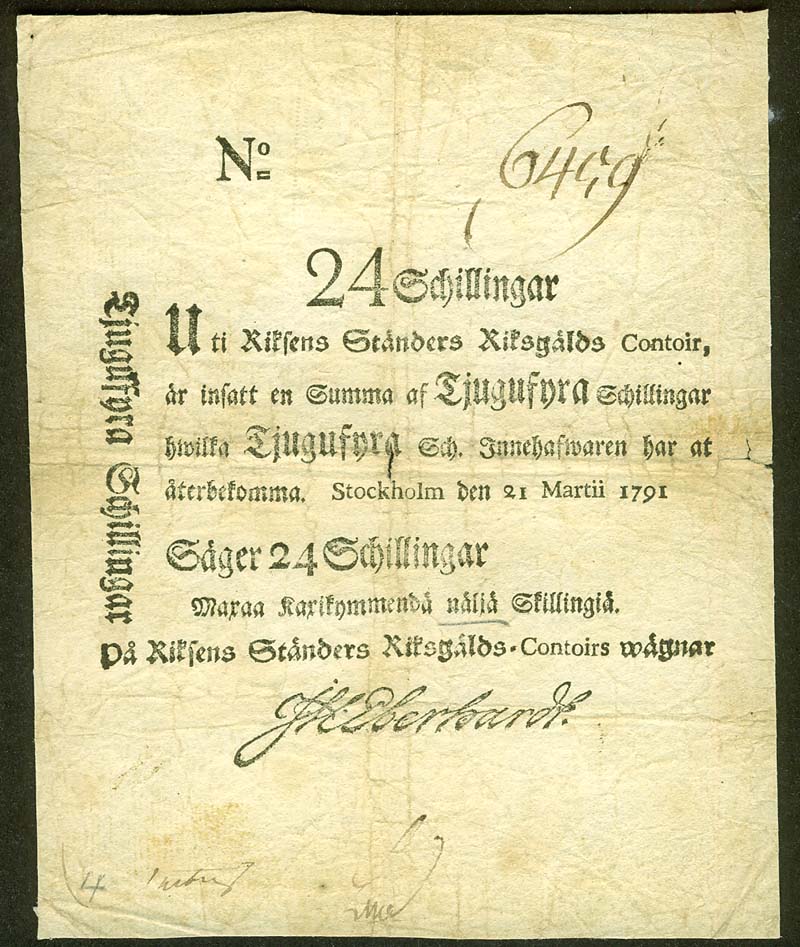 No 6459
24 Schillingar
Uti Riksens Ständers Riksgälds Contoir,
är insatt en Summa af Tjugufyra Schillingar
hwilka Tjugufyra Sch. Innehafwaren har at
återbekomma. Stockholm den 21 Martii 1791
Säger 24 Schillingar
Maxaa Kaxikymmendä näljä Skillingiä.
På Riksens Ständers Riksgälds-Contoirs wägnar
Eberhardt.
Tjugufyra Schillingar
4